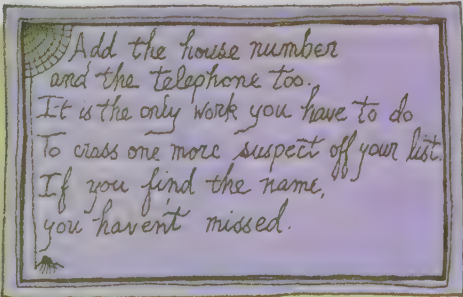 Add the house number
and the telephone too.
It is the only work you have to do
To cross one more suspect off your list.
If you find the name,
you haven't missed.